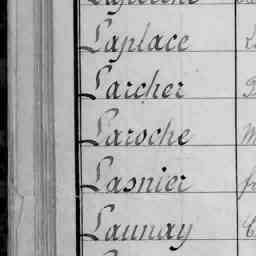 Laplace
Larcher
Laroche
Lasnier
Launay